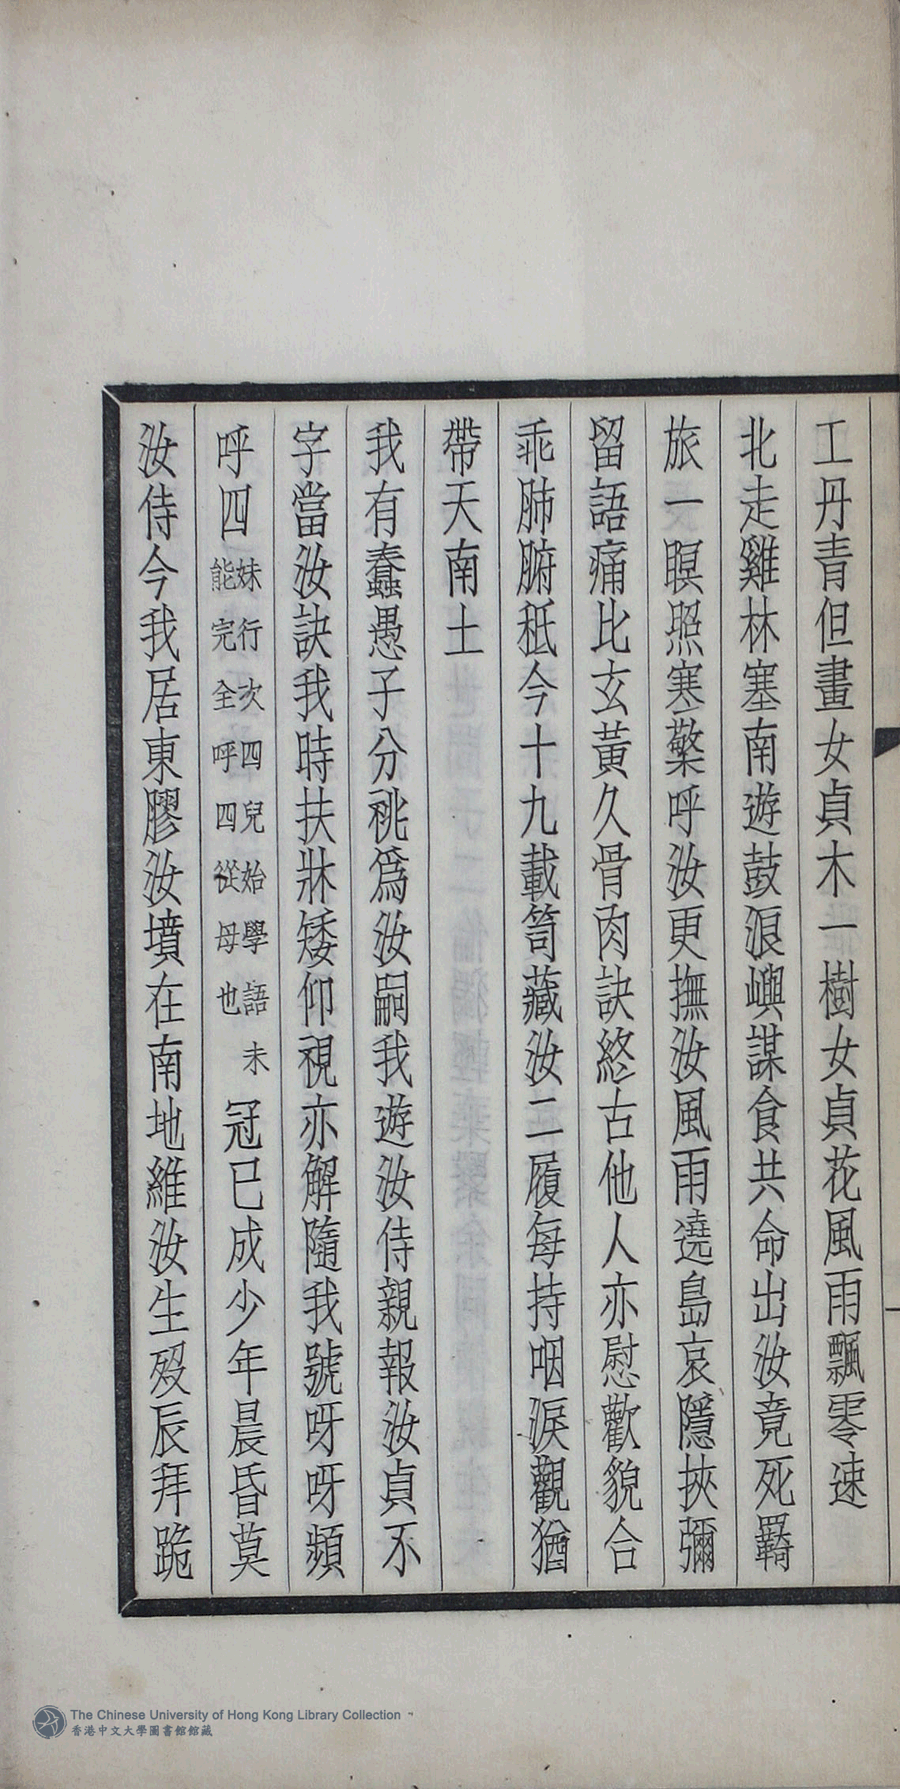 工丹青但畫女貞木一樹女貞花風雨飄零速
北走雞林塞南遊鼓浪嶼謀食共命出汝竟死羇
旅一暝照寒檠呼汝更撫汝風雨遶島哀隱挾彌
留語痛比玄黃久骨肉訣終古他人亦慰歡貌合
乖肺腑秖今十九載笥藏汝二履每持咽淚觀猶
帶天南土
我有蠢愚子分祧爲汝嗣我遊汝侍親報汝貞不
字當汝訣我時扶牀矮仰視亦解隨我號呀呀頻
呼四妹行次四兒始學語未能完全呼四從母也冠已成少年晨昏莫
汝侍今我居東膠汝墳在南地維汝生歿辰拜跪
The Chinese University of Hong Kong Library Collection
香港中文大學圖書館館藏